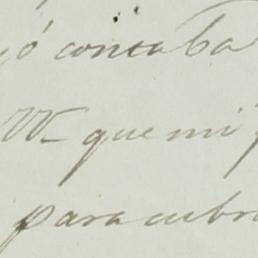 ó contaba
W- que mi
para cubr